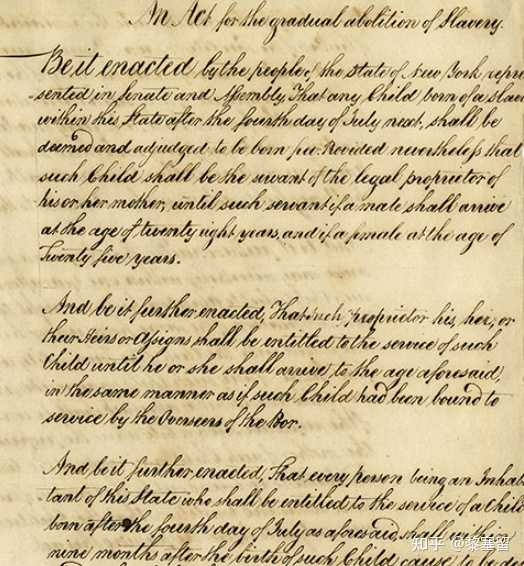 An Act for the gradual abolition of Slavery.
Be it enacted by the people of the State of New York repre
sented in Senate and Assembly That any Child born of a slave
within this State after the fourth day of July next, shall be
deemed and adjudged to be born free: Provided nevertheless that
such Child shall be the servant of the legal proprietor of
his or her mother, until such servant if a male shall arrive
at the age of twenty eight years, and if a female at the age of
Twenty five years.
And be it further enacted, That such proprietor his, her, or
their Heirs or Assigns shall be entitled to the service of such
Child until he or she shall arrive to the age aforesaid,
in the same manner as if such Child had been bound to
service by the Overseers of the Poor.
And be it further enacted, That every person being an Inhabi
tant of this State who shall be entitled to the service of a Child
born after the fourth day of July as aforesaid, shall within
nine months after the birth of such Child cause to be de
知乎 @黎塞留